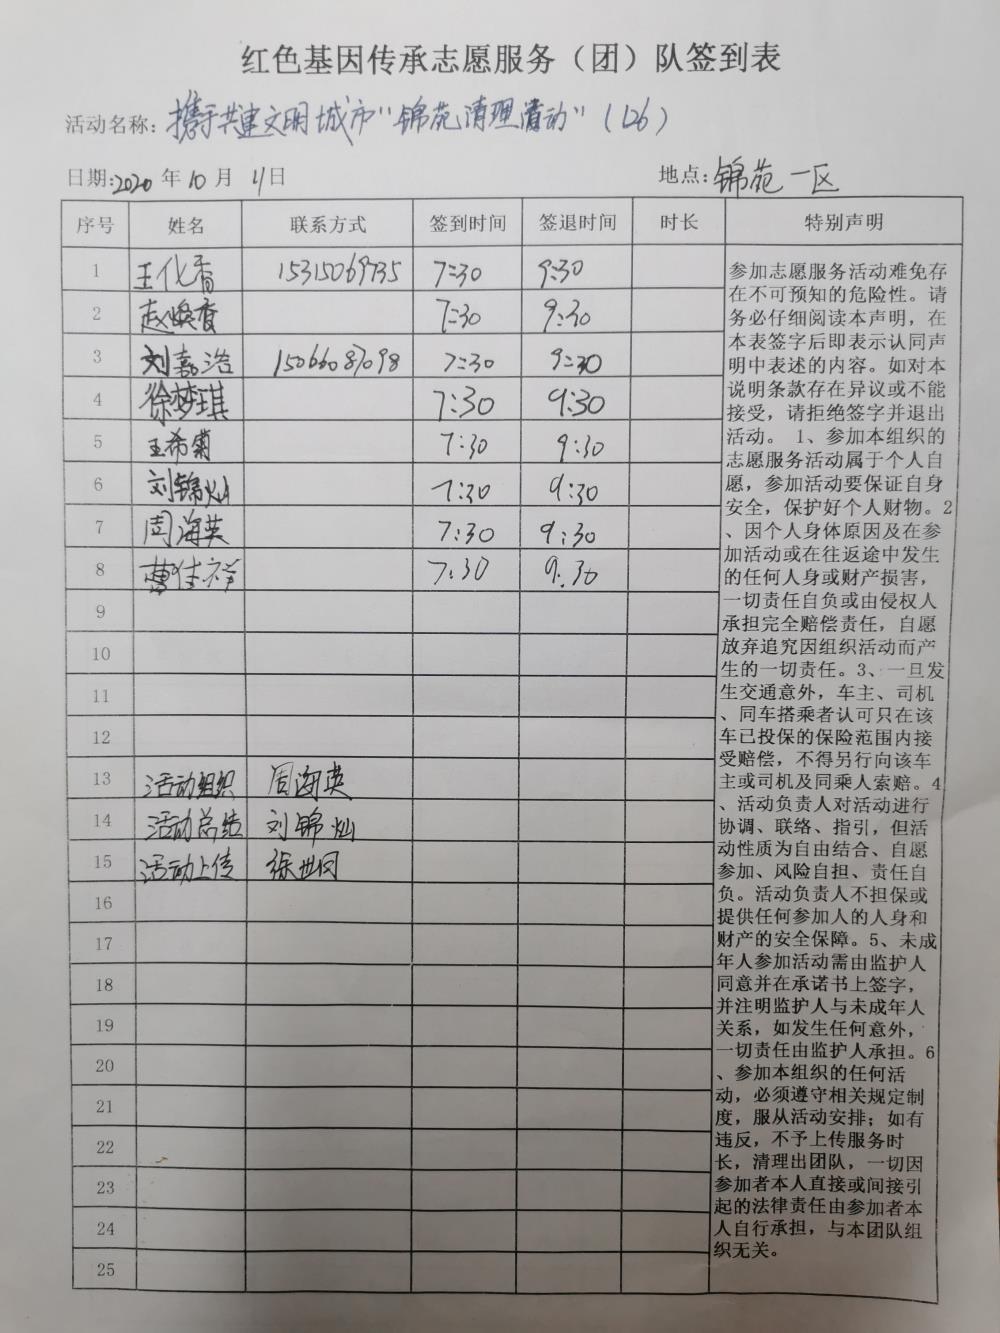 红色基因传承志愿服务（团）队签到表
活动名称: 携手共建文明城市“锦苑清理活动”（126）
日期:2020 年 10 月 11日 地点:锦苑一区
序号 姓名 联系方式 签到时间 签退时间 时长 特别声明
1 王化香 15315069735 7:30 9:30
2 赵焕香 7:30 9:30
3 刘嘉浩 15066087098 7:30 9:30
4 徐梦琪 7:30 9:30
5 王希菊 7:30 9:30
6 刘锦灿 7:30 9:30
7 周海英 7:30 9:30
8 曹佳祥 7:30 9:30
9
10
11
12
13 活动组织 周海英
14 活动总结 刘锦灿
15 活动上传 徐世同
16
17
18
19
20
21
22
23
24
25
参加志愿服务活动难免存
在不可预知的危险性。请
务必仔细阅读本声明，在
本表签字后即表示认同声
明中表述的内容。如对本
说明条款存在异议或不能
接受，请拒绝签字并退出
活动。 1、参加本组织的
志愿服务活动属于个人自
愿，参加活动要保证自身
安全，保护好个人财物。2
、因个人身体原因及在参
加活动或在往返途中发生
的任何人身或财产损害，
一切责任自负或由侵权人
承担完全赔偿责任，自愿
放弃追究因组织活动而产
生的一切责任。3、一旦发
生交通意外，车主、司机
、同车搭乘者认可只在该
车已投保的保险范围内接
受赔偿，不得另行向该车
主或司机及同乘人索赔。4
、活动负责人对活动进行
协调、联络、指引，但活
动性质为自由结合、自愿
参加、风险自担、责任自
负。活动负责人不担保或
提供任何参加人的人身和
财产的安全保障。5、未成
年人参加活动需由监护人
同意并在承诺书上签字，
并注明监护人与未成年人
关系，如发生任何意外，
一切责任由监护人承担。6
、参加本组织的任何活
动，必须遵守相关规定制
度，服从活动安排；如有
违反，不予上传服务时
长，清理出团队，一切因
参加者本人直接或间接引
起的法律责任由参加者本
人自行承担，与本团队组
织无关。